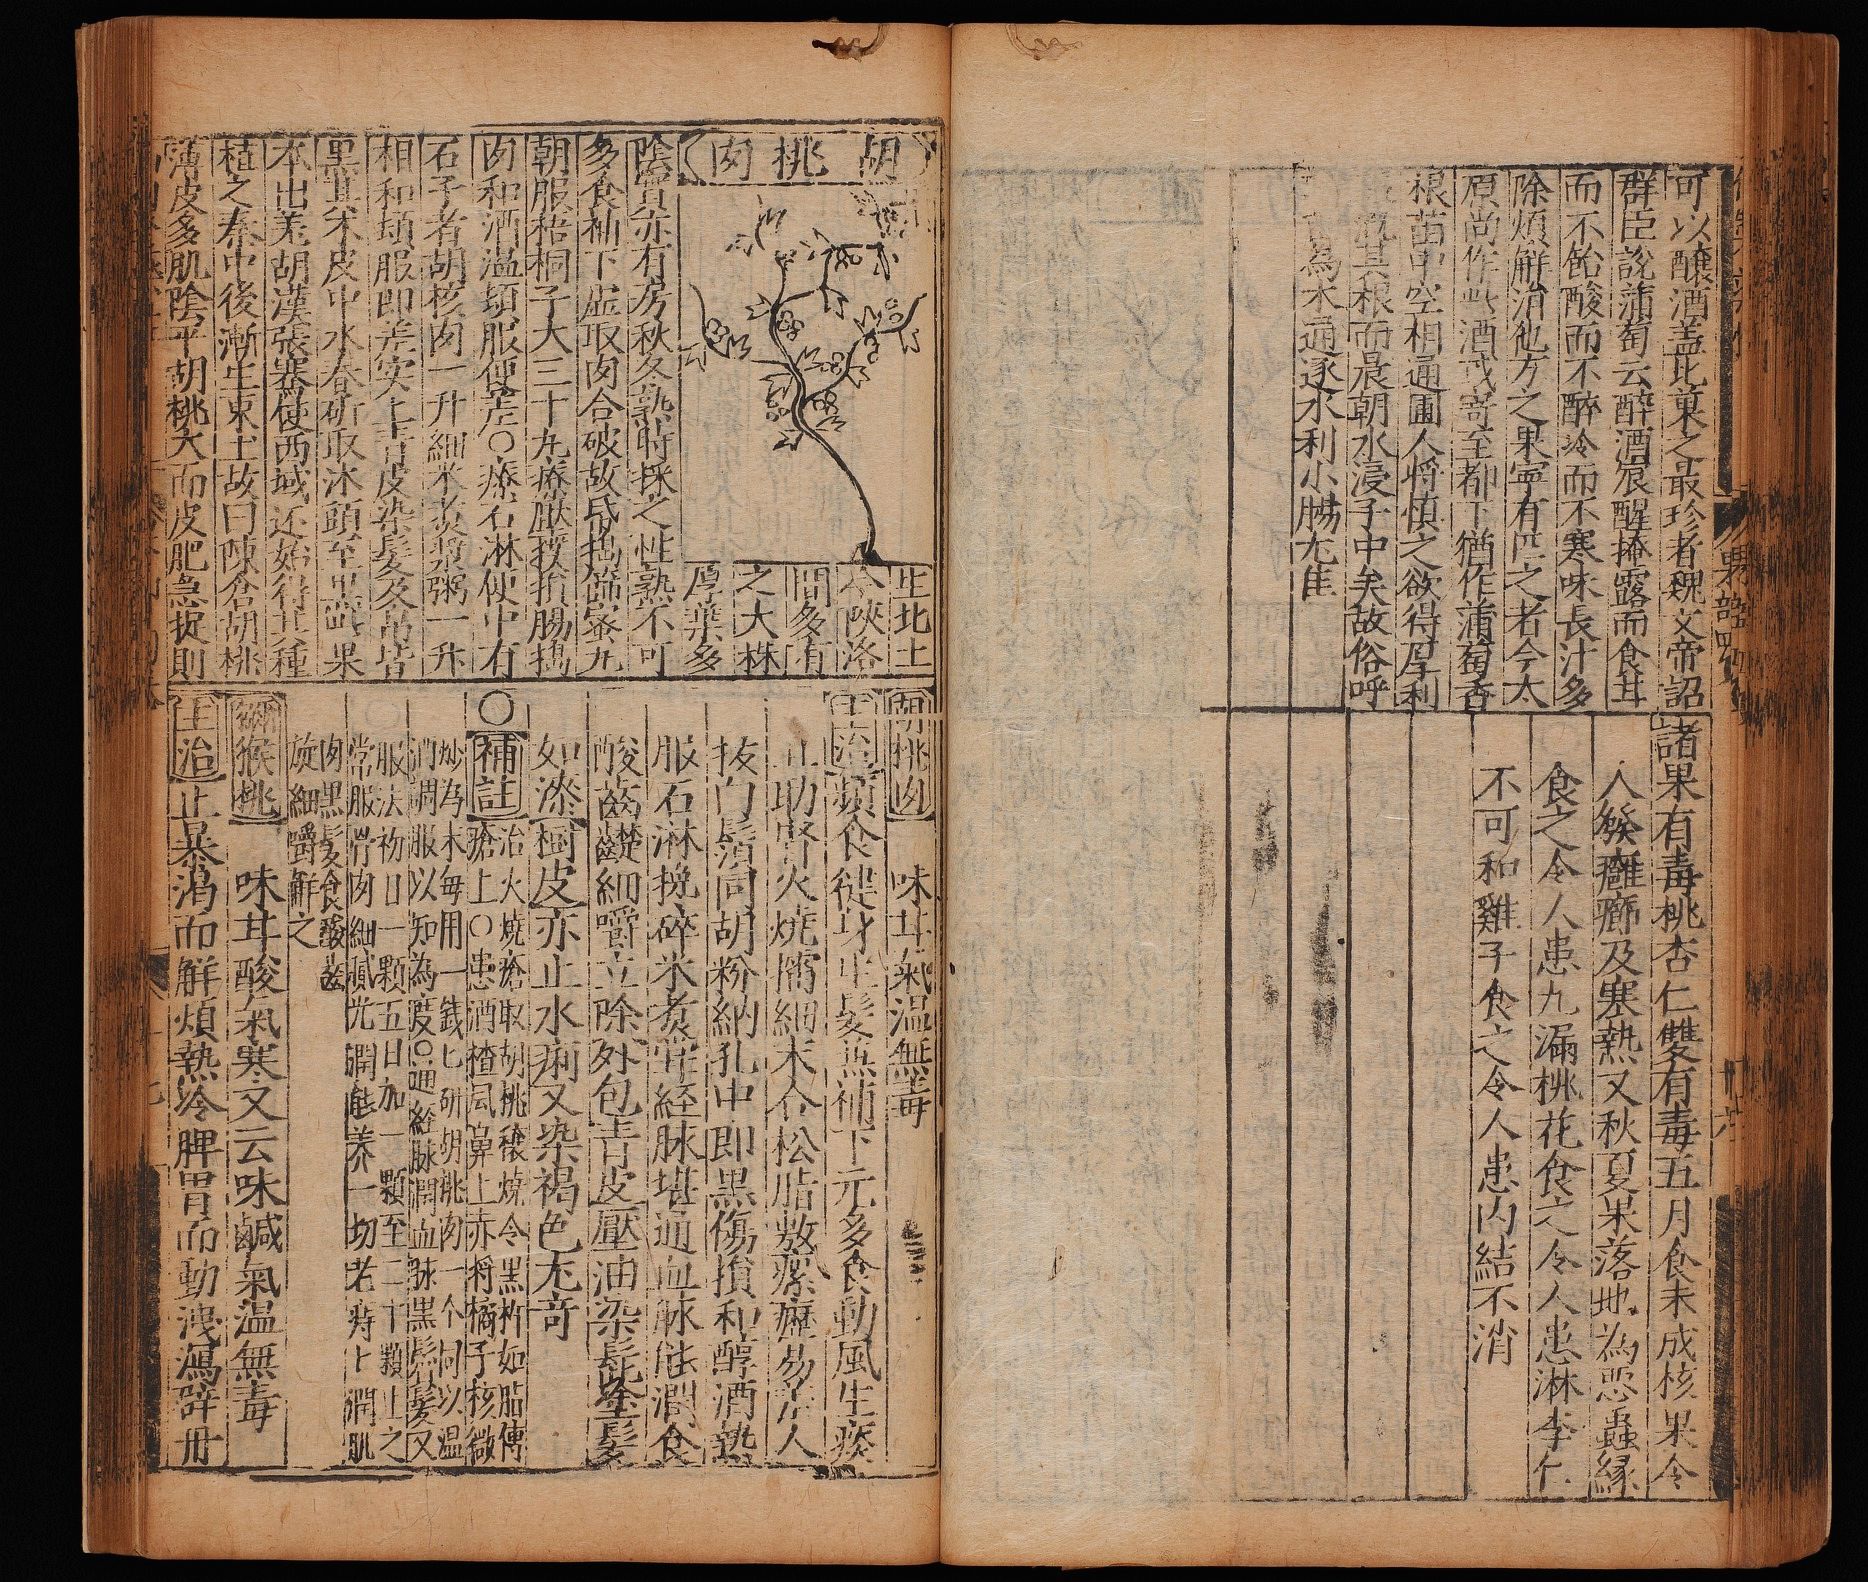 可以釀酒盖此菓之最珍者魏文帝詔
群臣說蒲萄云醉酒宿醒掩露而食甘
而不飴酸而不醉冷而不寒味長汁多
除煩解渴他方之果寧有匹之者今太
原尚作此酒或寄至都下猶作蒲萄香
根苗中空相通圃人將慎之欲得厚利
其根而晨朝水浸子中矣故俗呼
為木通逐水利小腸尤佳
諸果有毒桃杏仁雙有毒五月食未成核果令
人發癰癤及寒熱又秋夏果落地為惡蟲緣
食之令人患九漏桃花食之令人患淋李仁
不可和雞子食之令人患內結不消
胡桃肉
生北土
今陝洛
間多有
之大株
厚葉多
陰實亦有房秋冬熟時採之性熱不可
多食補下虛取肉合破故氏搗篩蜜丸
朝服梧桐子大三十丸療壓撲損腸搗
肉和酒溫頓服便差○療石淋便中有
石子者胡桃肉一升細米煮漿粥一升
相和頓服即差實上青皮染髮及帛皆
黑其木皮中水春斫取沐頭至黑此果
本出羌胡漢張騫使西域还始得其種
植之秦中後漸生東土故曰陳倉胡桃
薄皮多肌陰平胡桃大而皮肥急捉則
胡桃肉 味甘氣溫無毒
主治頻食健身生髮兼補下元多食動風生痰
且助腎火燒擣細末合松脂敷瘰癧易差人
拔白鬚同胡粉納孔中即黑傷損和醇酒熱
服石淋搗碎米煮常經脉堪通血脉能潤食
酸齒齼細嚼立除外包青皮壓油染髭塗髮
如漆樹皮亦止水痢又染褐色尤奇
○補註治火燒瘡取胡桃穰燒令黑杵如脂傅
瘡上○患酒楂風鼻上赤將橘子核微
炒為末每用一錢匕研胡桃肉一个同以溫
酒調服以知為度○通經脉潤血脉黑鬚髮又
服法初日一顆五日加一顆至二十顆止之
常服骨肉細膩光潤能養一切老痔上潤肌
肉黑髮食酸齒
旋細嚼解之
獼猴桃 味甘酸氣寒又云味鹹氣溫無毒
主治止暴渴而解煩熱冷脾胃而動洩瀉辟冊